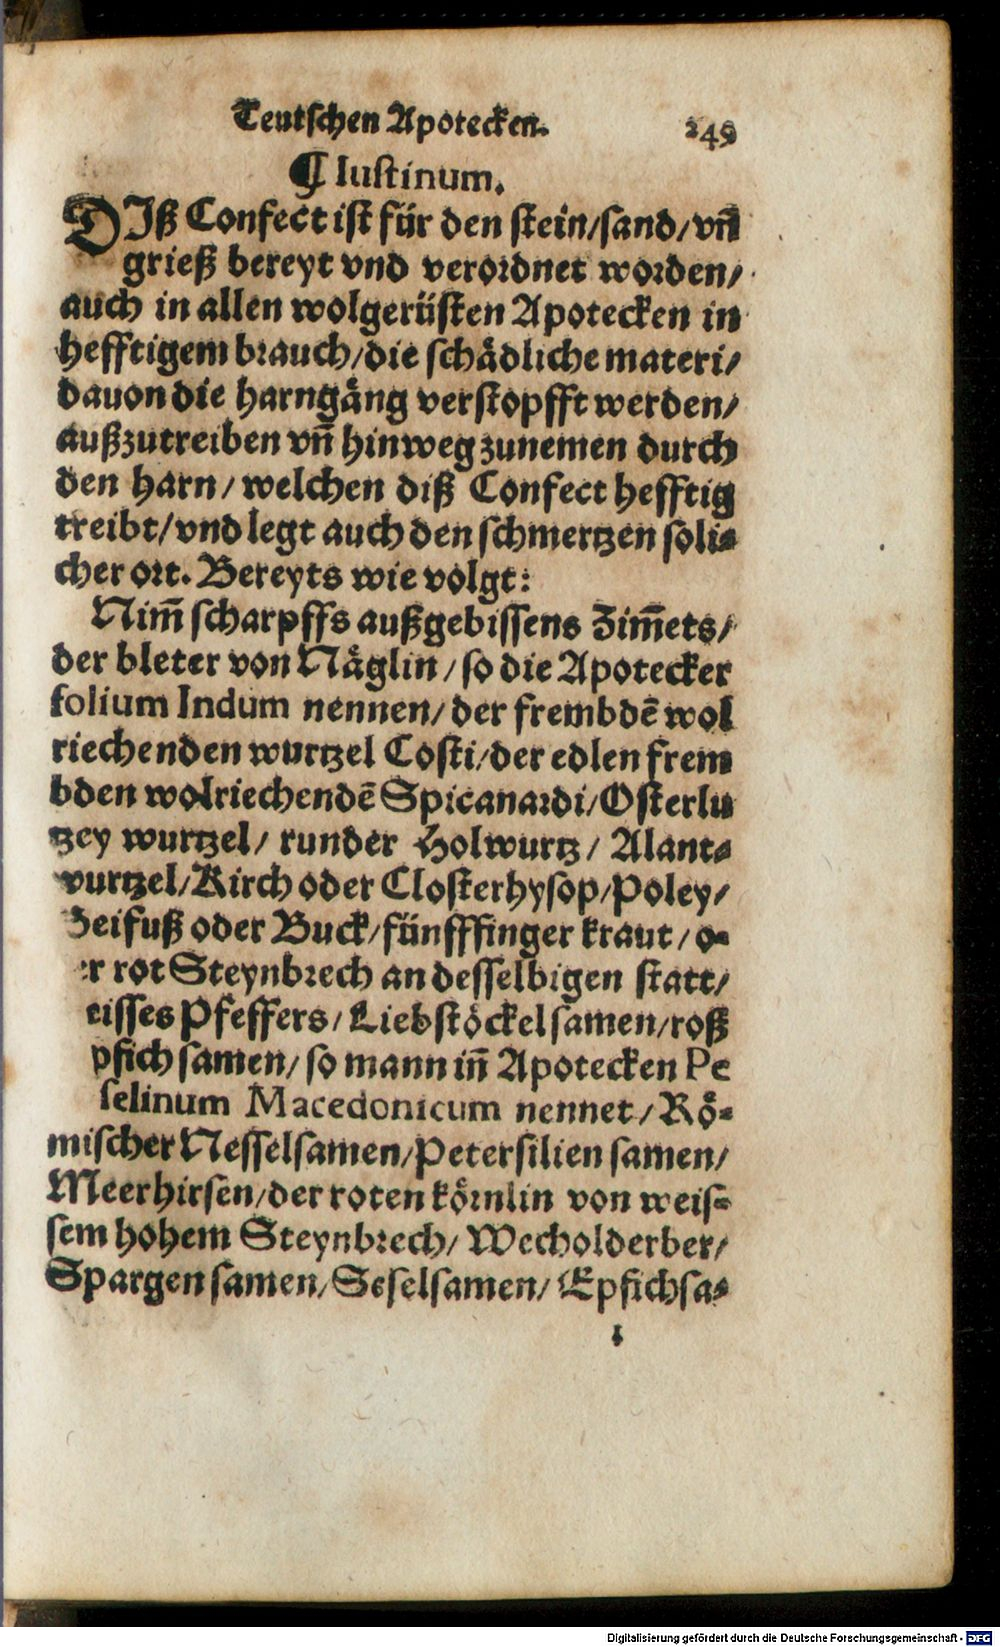 Teutschen Apotecken. 249
¶ Iustinum.
DIß Confect ist für den stein/sand/vn̄
grieß bereyt vnd verordnet worden/
auch in allen wolgerüsten Apotecken in
hefftigem brauch/die schådliche materi/
dauon die harngång verstopfft werden/
außzutreiben vn̄ hinweg zunemen durch
den harn/ welchen diß Confect hefftig
treibt/vnd legt auch den schmertzen soli⸗
cher ort. Bereyts wie volgt:
Nim̄ scharpffs außgebissens Zim̄ets/
der bleter von Någlin/ so die Apotecker
folium Indum nennen/ der frembdē wol
riechenden wurtzel Costi/der edlen frem
bden wolriechendē Spicanardi/Osterlu
tzey wurtzel/ runder Holwurtz/ Alant⸗
wurtzel/Kirch oder Closterhysop/Poley/
Beifuß oder Buck/fünfffinger kraut/ o⸗
er rot Steynbrech an desselbigen statt/
eisses Pfeffers/ Liebstöckel samen/roß
pfich samen/ so mann in̄ Apotecken Pe
selinum Macedonicum nennet/ Rö⸗
mischer Nesselsamen/Petersilien samen/
Meerhirsen/der roten körnlin von weis⸗
sem hohem Steynbrech/ Wecholderber/
Spargen samen/Seselsamen/ Epfichsa⸗
Digitalisierung gefördert durch die Deutsche Forschungsgemeinschaft - DFG